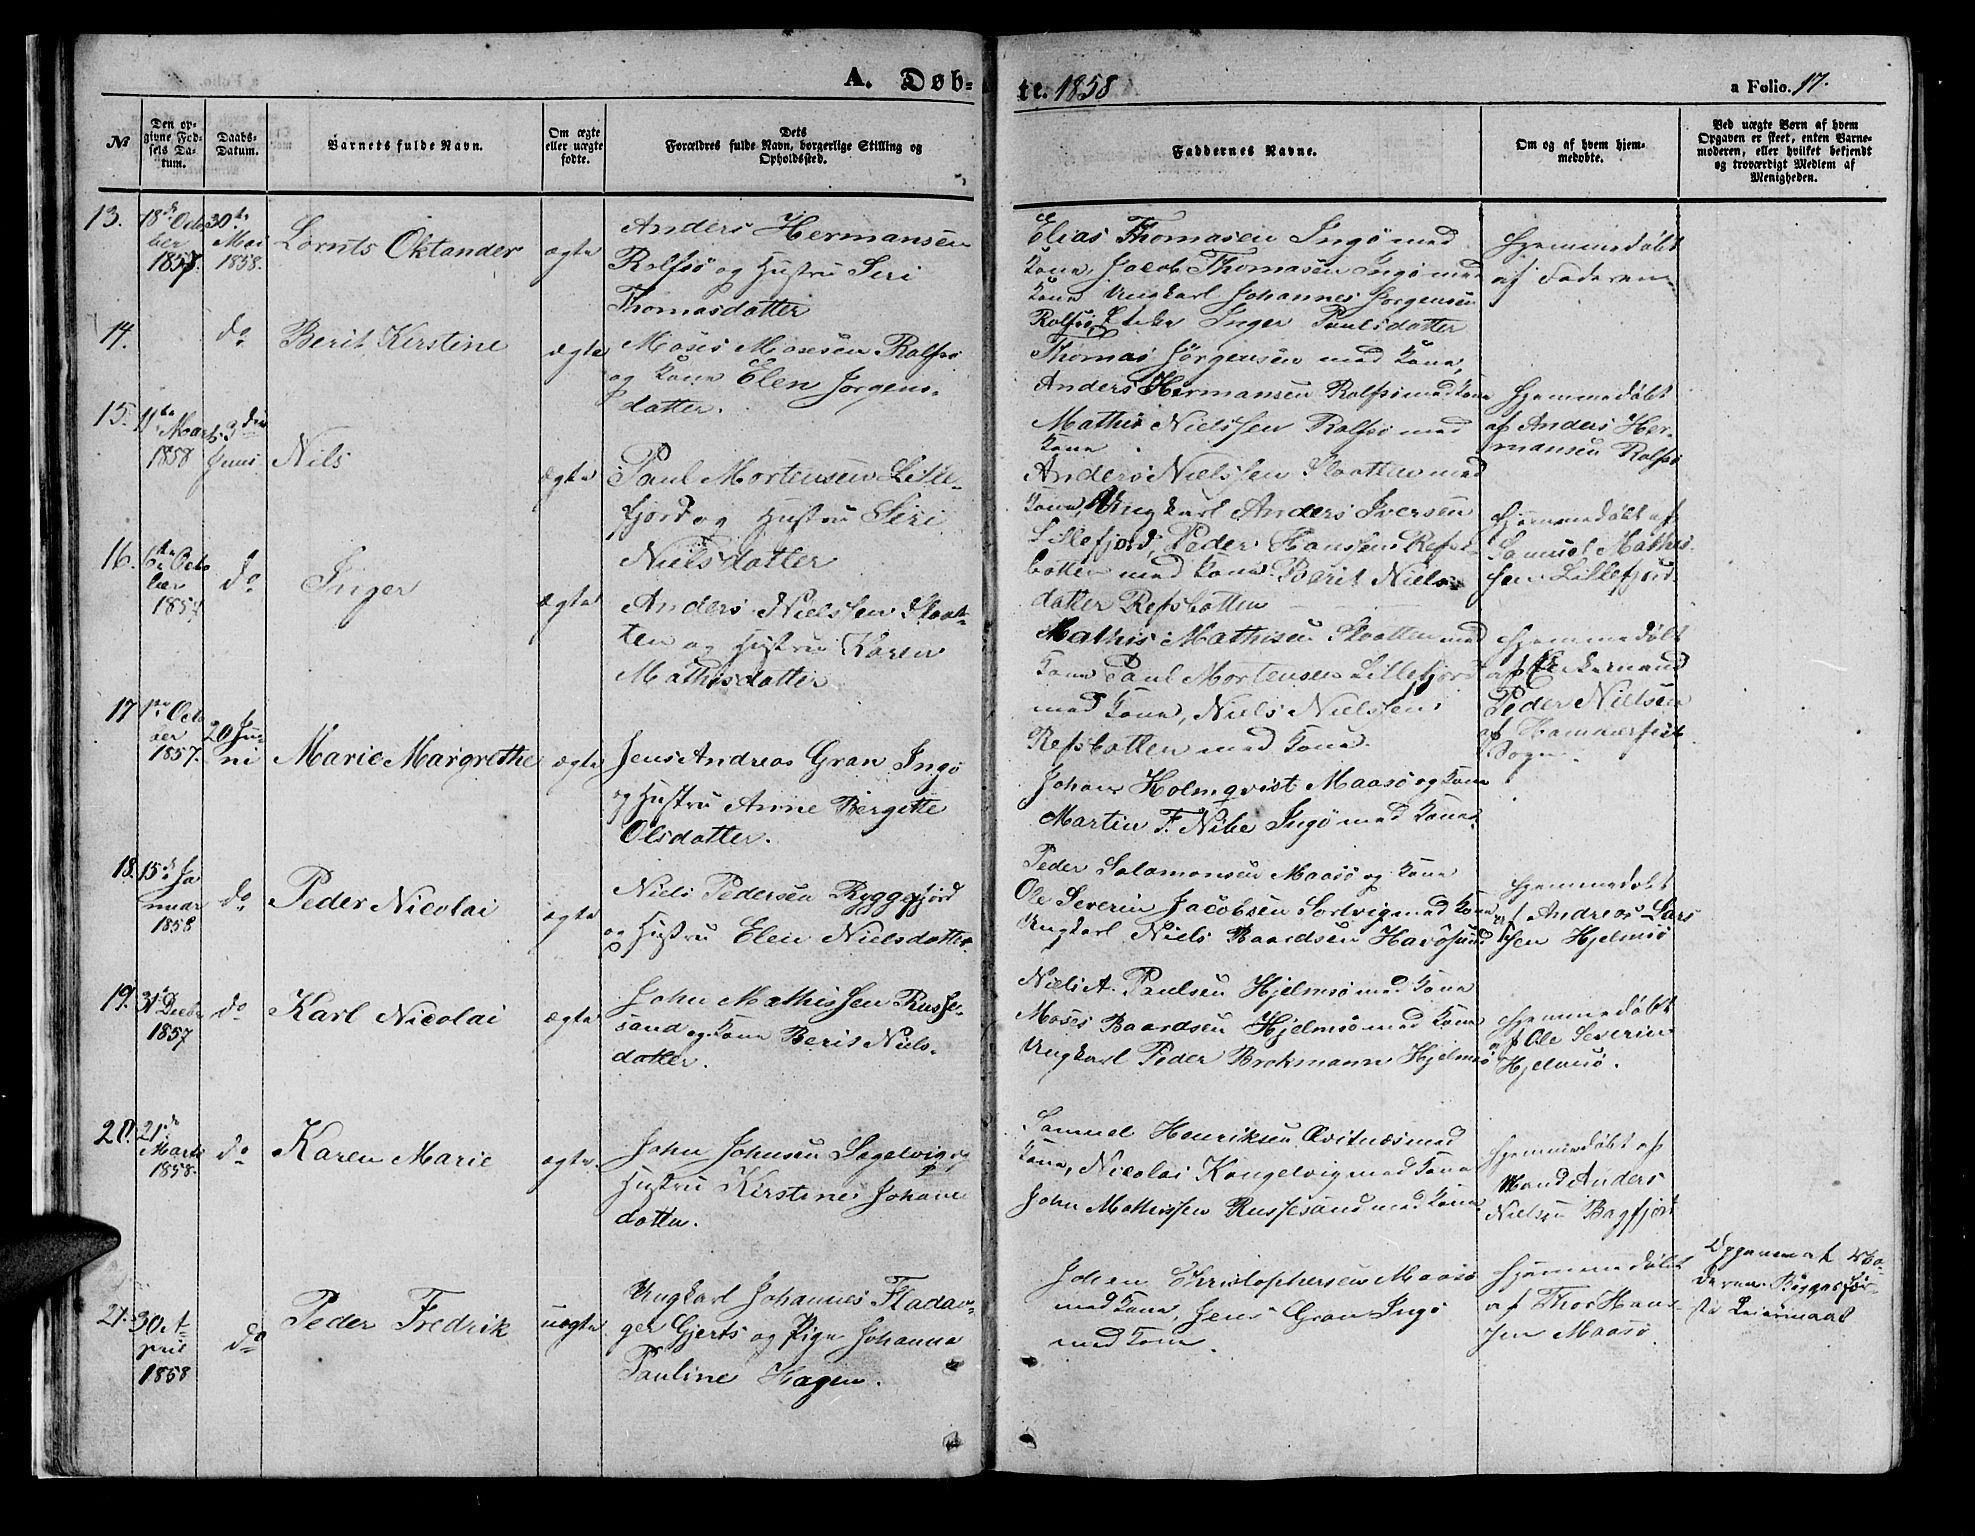 A. Døb-
te. 1858
a Folio. 17.
№
Den op-
givne Fød-
sels Da-
tum.
Daabs-
Datum.
Barnets fulde Navn.
Om ægte
eller uægte
fødte.
Dets
Forældres fulde Navn, borgerlige Stilling og
Opholdssted.
Faddernes Navne.
Om og af hvem hjem-
medøbte.
Ved uægte Børn af hvem
Opgaven er skeet, enten Barne-
moderen, eller hvilket bekjendt
og troværdigt Medlem af
Menigheden.
13.
18de Octo
ber
1857.
30te
Mai
1858.
Lornts Oktander
ægte
Anders Hermansen
Rolfsø og Hustru Siri
Thomasdatter
Elias Thomasen Ingø med
Kone, Jacob Thomasen Ingø med
Kone Ungkarl Johannes Jørgensen
Rolfsø, Inger Paulsdatter
Hjemmedøbt
af Faderen
14.
do
Berit Kirstine
ægte
Moses Mosesen Rolfsø
og Kone Elen Jørgens-
datter.
Thomas Jørgensen med Kone,
Anders Hermansen Rolfsø med Kone
Mathis Nielssen Rolfsø med
Kone
Hjemmedøbt
af Anders Her-
mansen Rolfsø
15.
11te Marts
1858
3die
Juni
Nils
ægte
Paul Mortensen Lille-
fjord og Hustru Siri
Nielsdatter
Anders Nielssen Slaatten med
Kone, Ungkarl Anders Iversen
Lillefjord, Peder Hansen Refs-
botten med Kone. Berit Niels-
datter Refsbotten
Hjemmedøbt af
Samuel Mathis-
sen Lillefjord
16.
6te Octo
ber
1857
do
Inger
ægte
Anders Nielssen Slaat-
ten og Hustru Karen
Mathisdatter
Mathis Mathisen Slaatten med
Kone Paul Mortensen Lillefjord
med Kone, Niels Nielssen
Refsbotten med Kone.
Hjemmedøbt
af
Peder Nielsen
Hammerfest
Sogn.
17
1ste Octo
ber
1857.
20 Ju-
ni
Marie Margrethe
ægte
Jens Andreas Gran Ingø
og Hustru Anne Bergitte
Olsdatter.
Johan Holmqvist Maasø og Kone
Martin F. Nibe Ingø med Kone.
18.
15de Ja
nuar
1858
do
Peder Nicolai
ægte
Niels Pedersen Ryggefjord
og Hustru Elen Nielsdatter
Peder Salamonsen Maasø og Kone
Ole Severin Jacobsen Sortvig med Kone
Ungkarl Niels Baardsen Havøsund
Hjemmedøbt
af Andreas Lars
sen Hjelmsø
19.
31te Decbr
1857
do
Karl Nicolai
ægte
John Mathissen Russe-
sand og Kone Berit Niels-
datter.
Niels A. Paulsen Hjelmsø med Kone
Moses Baardsen Hjelmsø med Kone
Ungkarl Peder Brokmann Hjelmsø
Hjemmedøbt
af Ole Severin
Hjelmsø.
20.
21de
Marts
1858.
do
Karen Marie
ægte.
John Johnsen Sagelvig og
Hustru Kirstine Johans
datter.
Samuel Henriksen Qvitnæs med
Kone, Nicolai Kongelvig med Kone
John Mathissen Russesand med Kone
Hjemmedøbt af
Mand Anders
Nielsen Bagfjord
21.
30 A-
pril
1858
do
Peder Fredrik
uægte
Ungkarl Johannes Fladav-
ger Gjerts og Pige Johanna
Pauline Hagen.
Johan Christophersen Maasø
med Kone, Jens Gran Ingø
med Kone.
Hjemmedøbt
af Thor Han-
sen Maasø.
Opgivne af Mo-
deren. Begges før-
ste Leiermaal